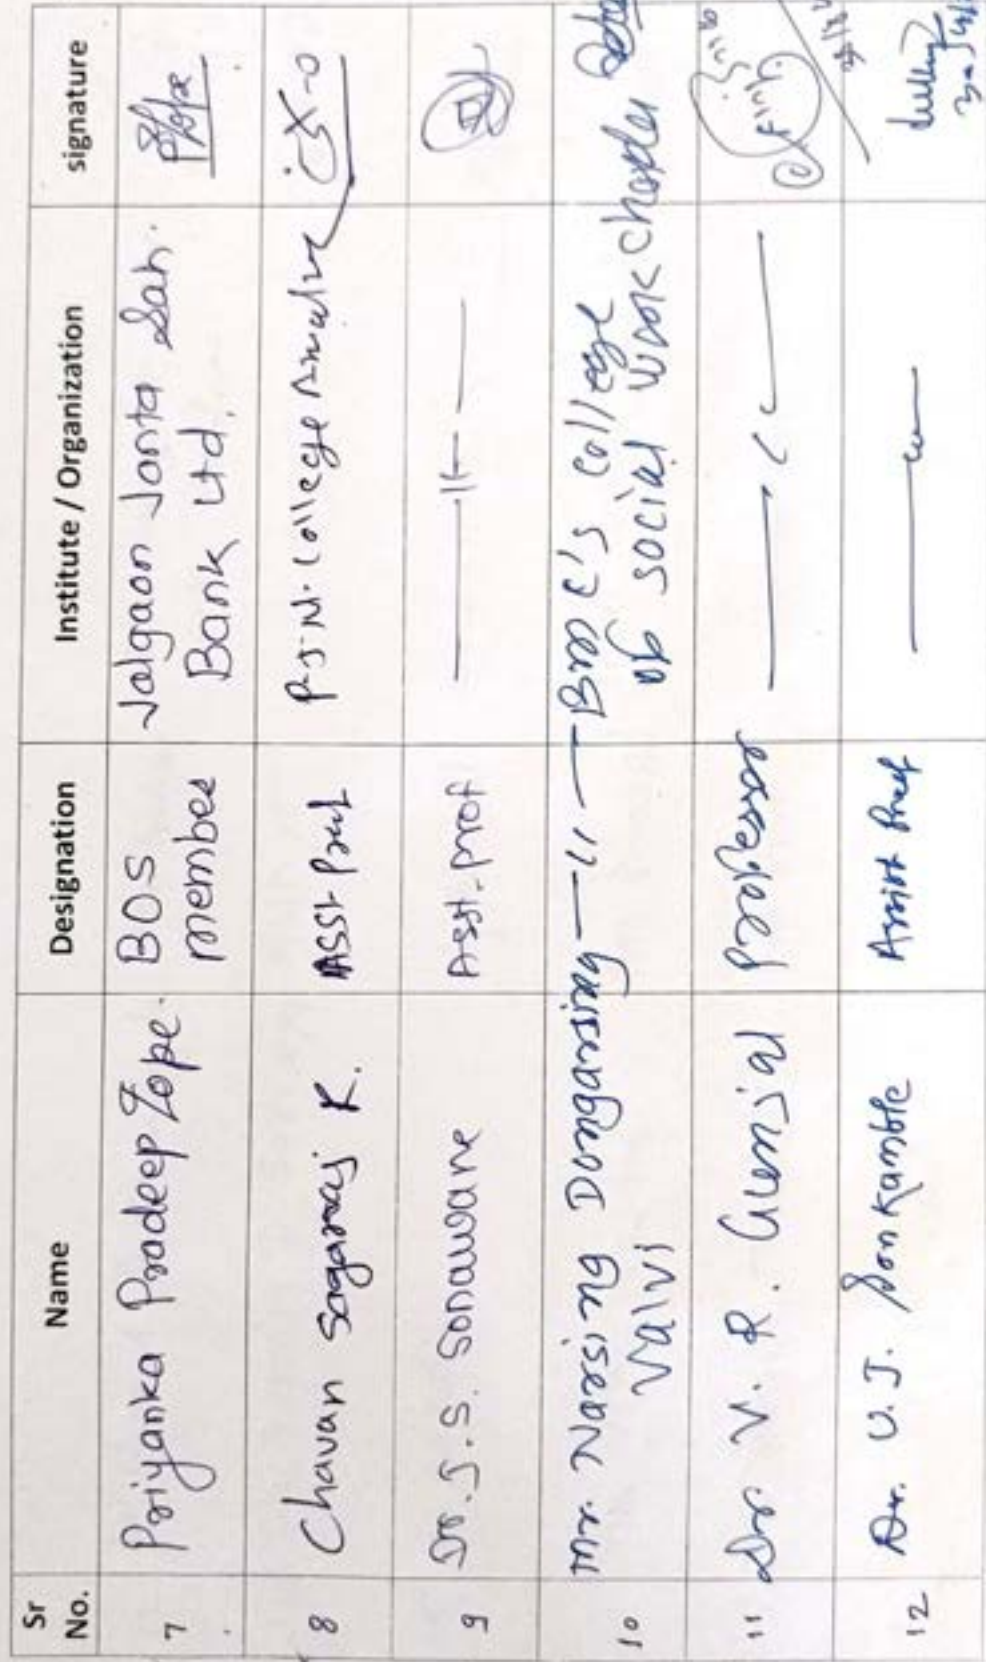 Sr No. Name Designation Institute / Organization signature
7 Priyanka Pradeep Zope. BOS member Jalgaon Janta Sah. Bank Ltd.
8 Chavan Sagarraj R. Asst Prof P.S.N. College
9 Dr. J. S. Sonawane Asst. prof —11—
10 Mr. Narsing Dongarsing Valvi —11— college of social work chopda
11 Dr. V. R. Professor —
12 Dr. U. J. Sonkamble Assist Prof —